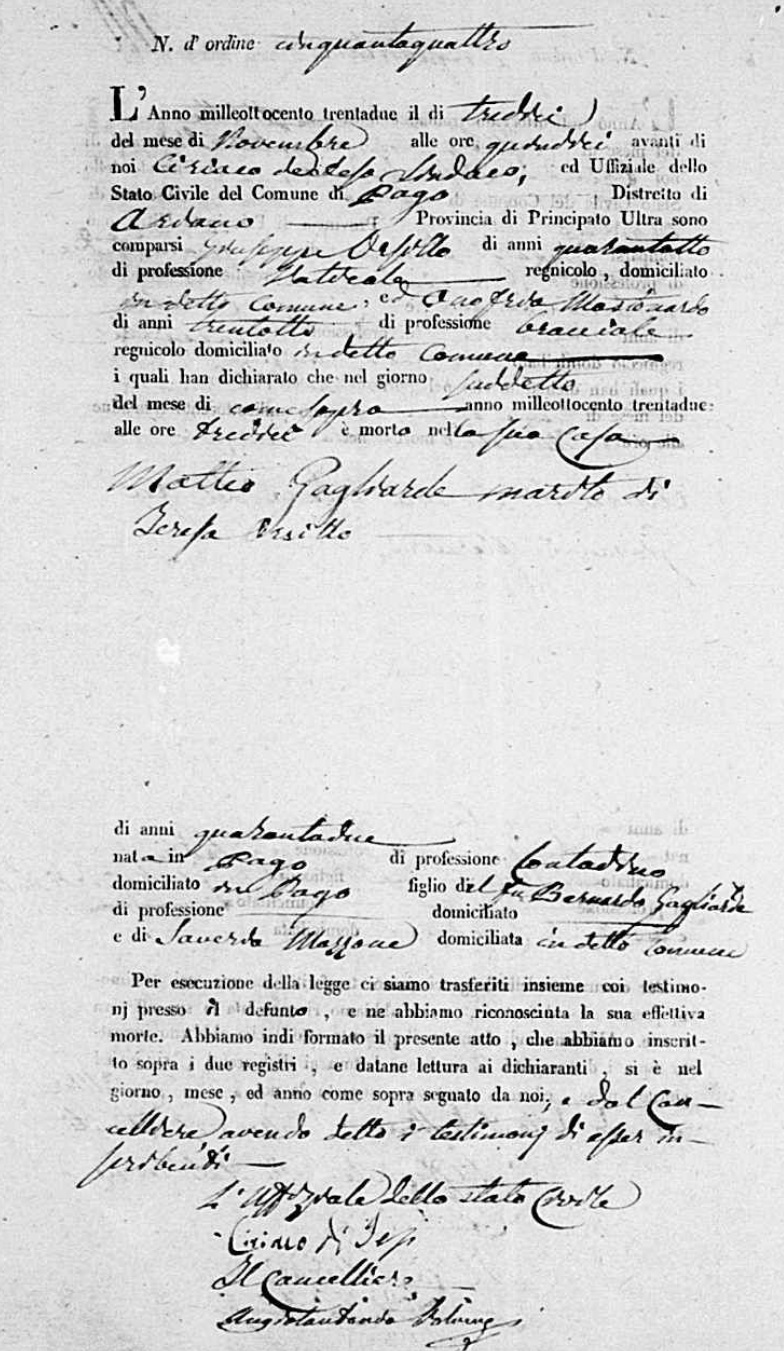 N. d' ordine cinquantaquattro
L'Anno milleottocento trentadue il di tredici
del mese di Novembre alle ore quindici avanti di
noi Ciriaco Sindaco, ed Uffiziale dello
Stato Civile del Comune di Pago Distretto di
Ariano Provincia di Principato Ultra sono
comparsi Giuseppe di anni quarantotto
di professione regnicolo, domiciliato
in detto Comune, ed Onofrio
di anni trentotto di professione bracciale
regnicolo domiciliato in detto Comune
i quali han dichiarato che nel giorno suddetto
del mese di come sopra anno milleottocento trentadue
alle ore tredici è morto nella sua Casa
Matteo Gagliarde marito di
Teresa
di anni quarantadue
nata in Pago di professione Contadino
domiciliato in Pago figlio del fu Bernardo Gagliarde
di professione domiciliato
e di Saveria Mazzone domiciliata in detto Comune
Per esecuzione della legge ci siamo trasferiti insieme coi testimo-
nj presso il defunto, e ne abbiamo riconosciuta la sua effettiva
morte. Abbiamo indi formato il presente atto, che abbiamo inscrit-
to sopra i due registri, e datane lettura ai dichiaranti, si è nel
giorno, mese, ed anno come sopra segnato da noi, e dal Can-
celliere, avendo detto i testimonj di esser in-
scribendi
L'Uffiziale dello stato Civile
Ciriaco di
Il Cancelliere